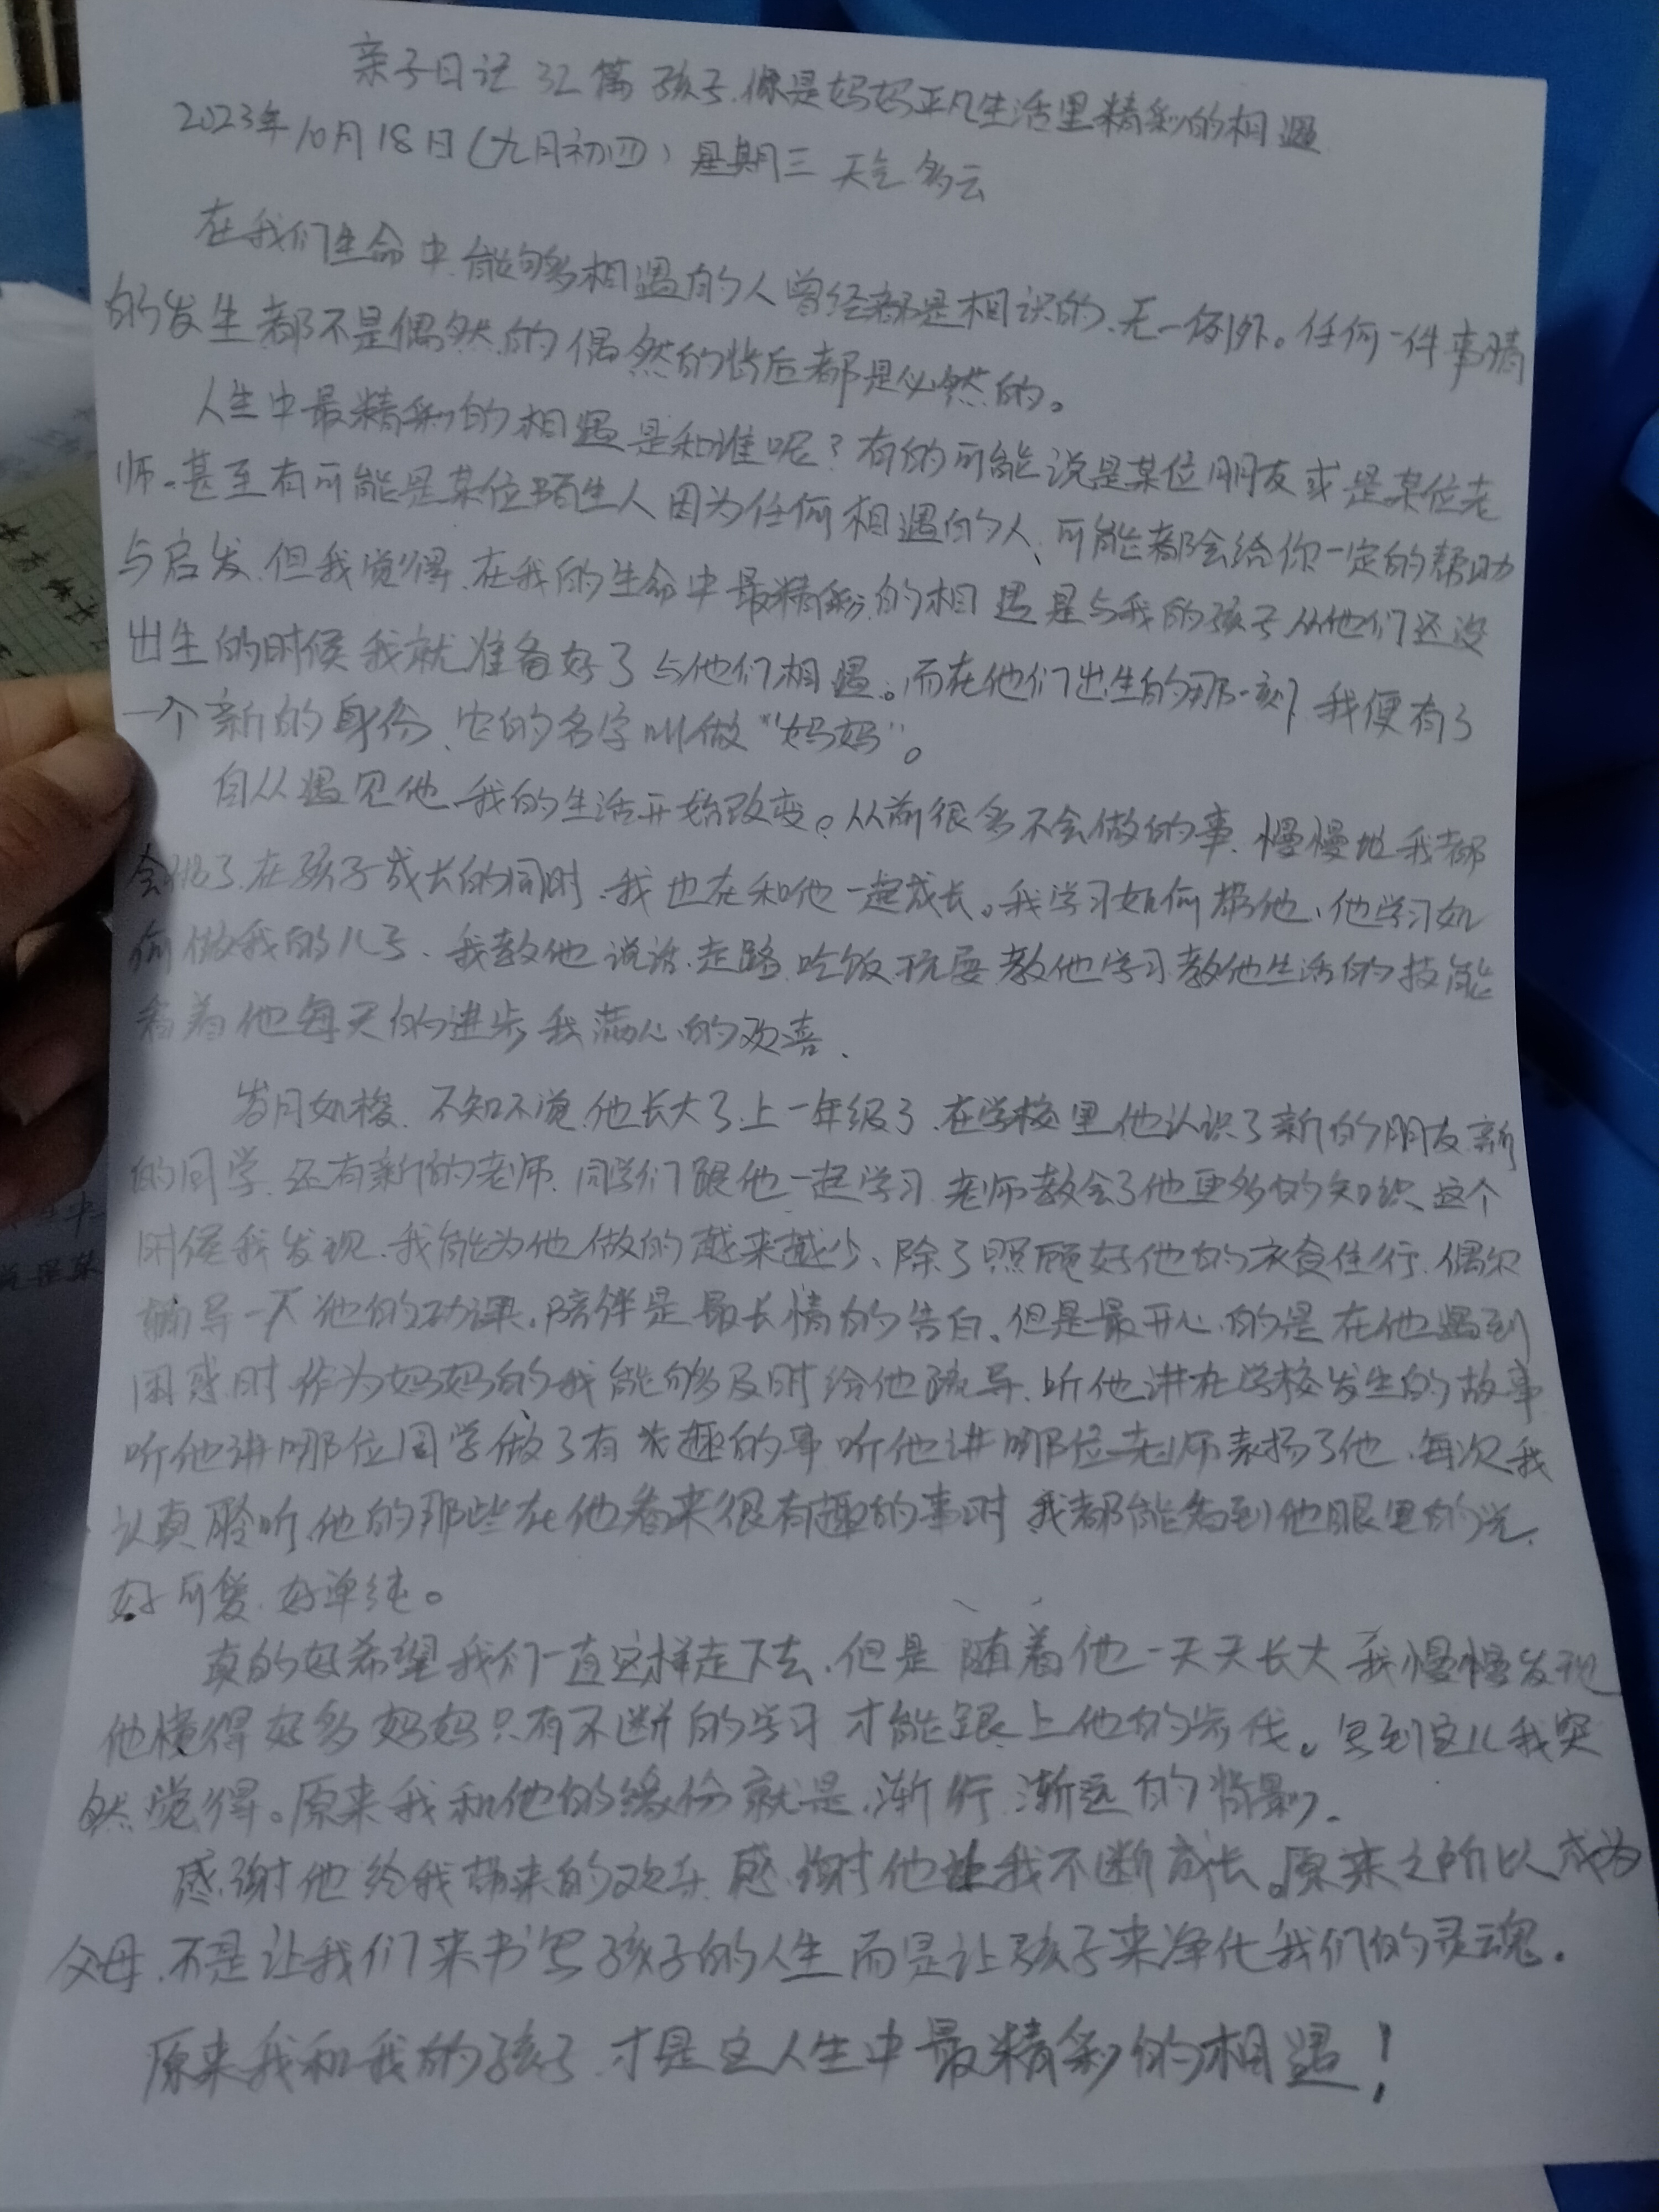 亲子日记 32篇 孩子.像是妈妈平凡生活里精彩的相遇
2023年10月18日(九月初四) 星期三 天气 多云
在我们生命中.能够相遇的人曾经都是相识的、无一例外。任何一件事情
的发生都不是偶然的偶然的背后都是必然的。
人生中最精彩的相遇是和谁呢?有的可能说是某位朋友或是某位老
师。甚至有可能是某位陌生人因为任何相遇的人、可能都会给你一定的帮助
与启发.但我觉得.在我的生命中最精彩的相遇是与我的孩子从他们还没
出生的时候我就准备好了与他们相遇。而在他们出生的那一刻、我便有了
一个新的身份、它的名字叫做“妈妈”。
自从遇见他、我的生活开始改变。从前很多不会做的事、慢慢地我都
会做了.在孩子成长的同时、我也在和他一起成长。我学习如何帮他、他学习如
何做我的儿子、我教他说话.走路.吃饭.玩耍教他学习教他生活的技能
看着他每天的进步、我满心的欢喜.
岁月如梭.不知不觉.他长大了.上一年级了.在学校里他认识了新的朋友.新
的同学.还有新的老师.同学们跟他一起学习.老师教会了他更多的知识、这个
时侯我发现.我能为他做的越来越少、除了照顾好他的衣食住行.偶尔
辅导一下他的功课.陪伴是最长情的告白.但是最开心的是在他遇到
困惑时作为妈妈的我能够及时给他疏导.听他讲在学校发生的故事
听他讲哪位同学做了有趣的事听他讲哪位老师表扬了他.每次我
认真聆听他的那些在他看来很有趣的事时 我都能看到他眼里的光.
好可爱.好单纯。
真的好希望我们一直这样走下去.但是随着他一天天长大 我慢慢发现
他懂得好多妈妈只有不断的学习才能跟上他的步伐。写到这儿我突
然觉得。原来我和他的缘份就是.渐行渐远的背影.
感谢他给我带来的欢乐.感谢他让我不断成长。原来之所以成为
父母.不是让我们来书写孩子的人生而是让孩子来净化我们的灵魂.
原来我和我的孩子.才是这人生中最精彩的相遇!